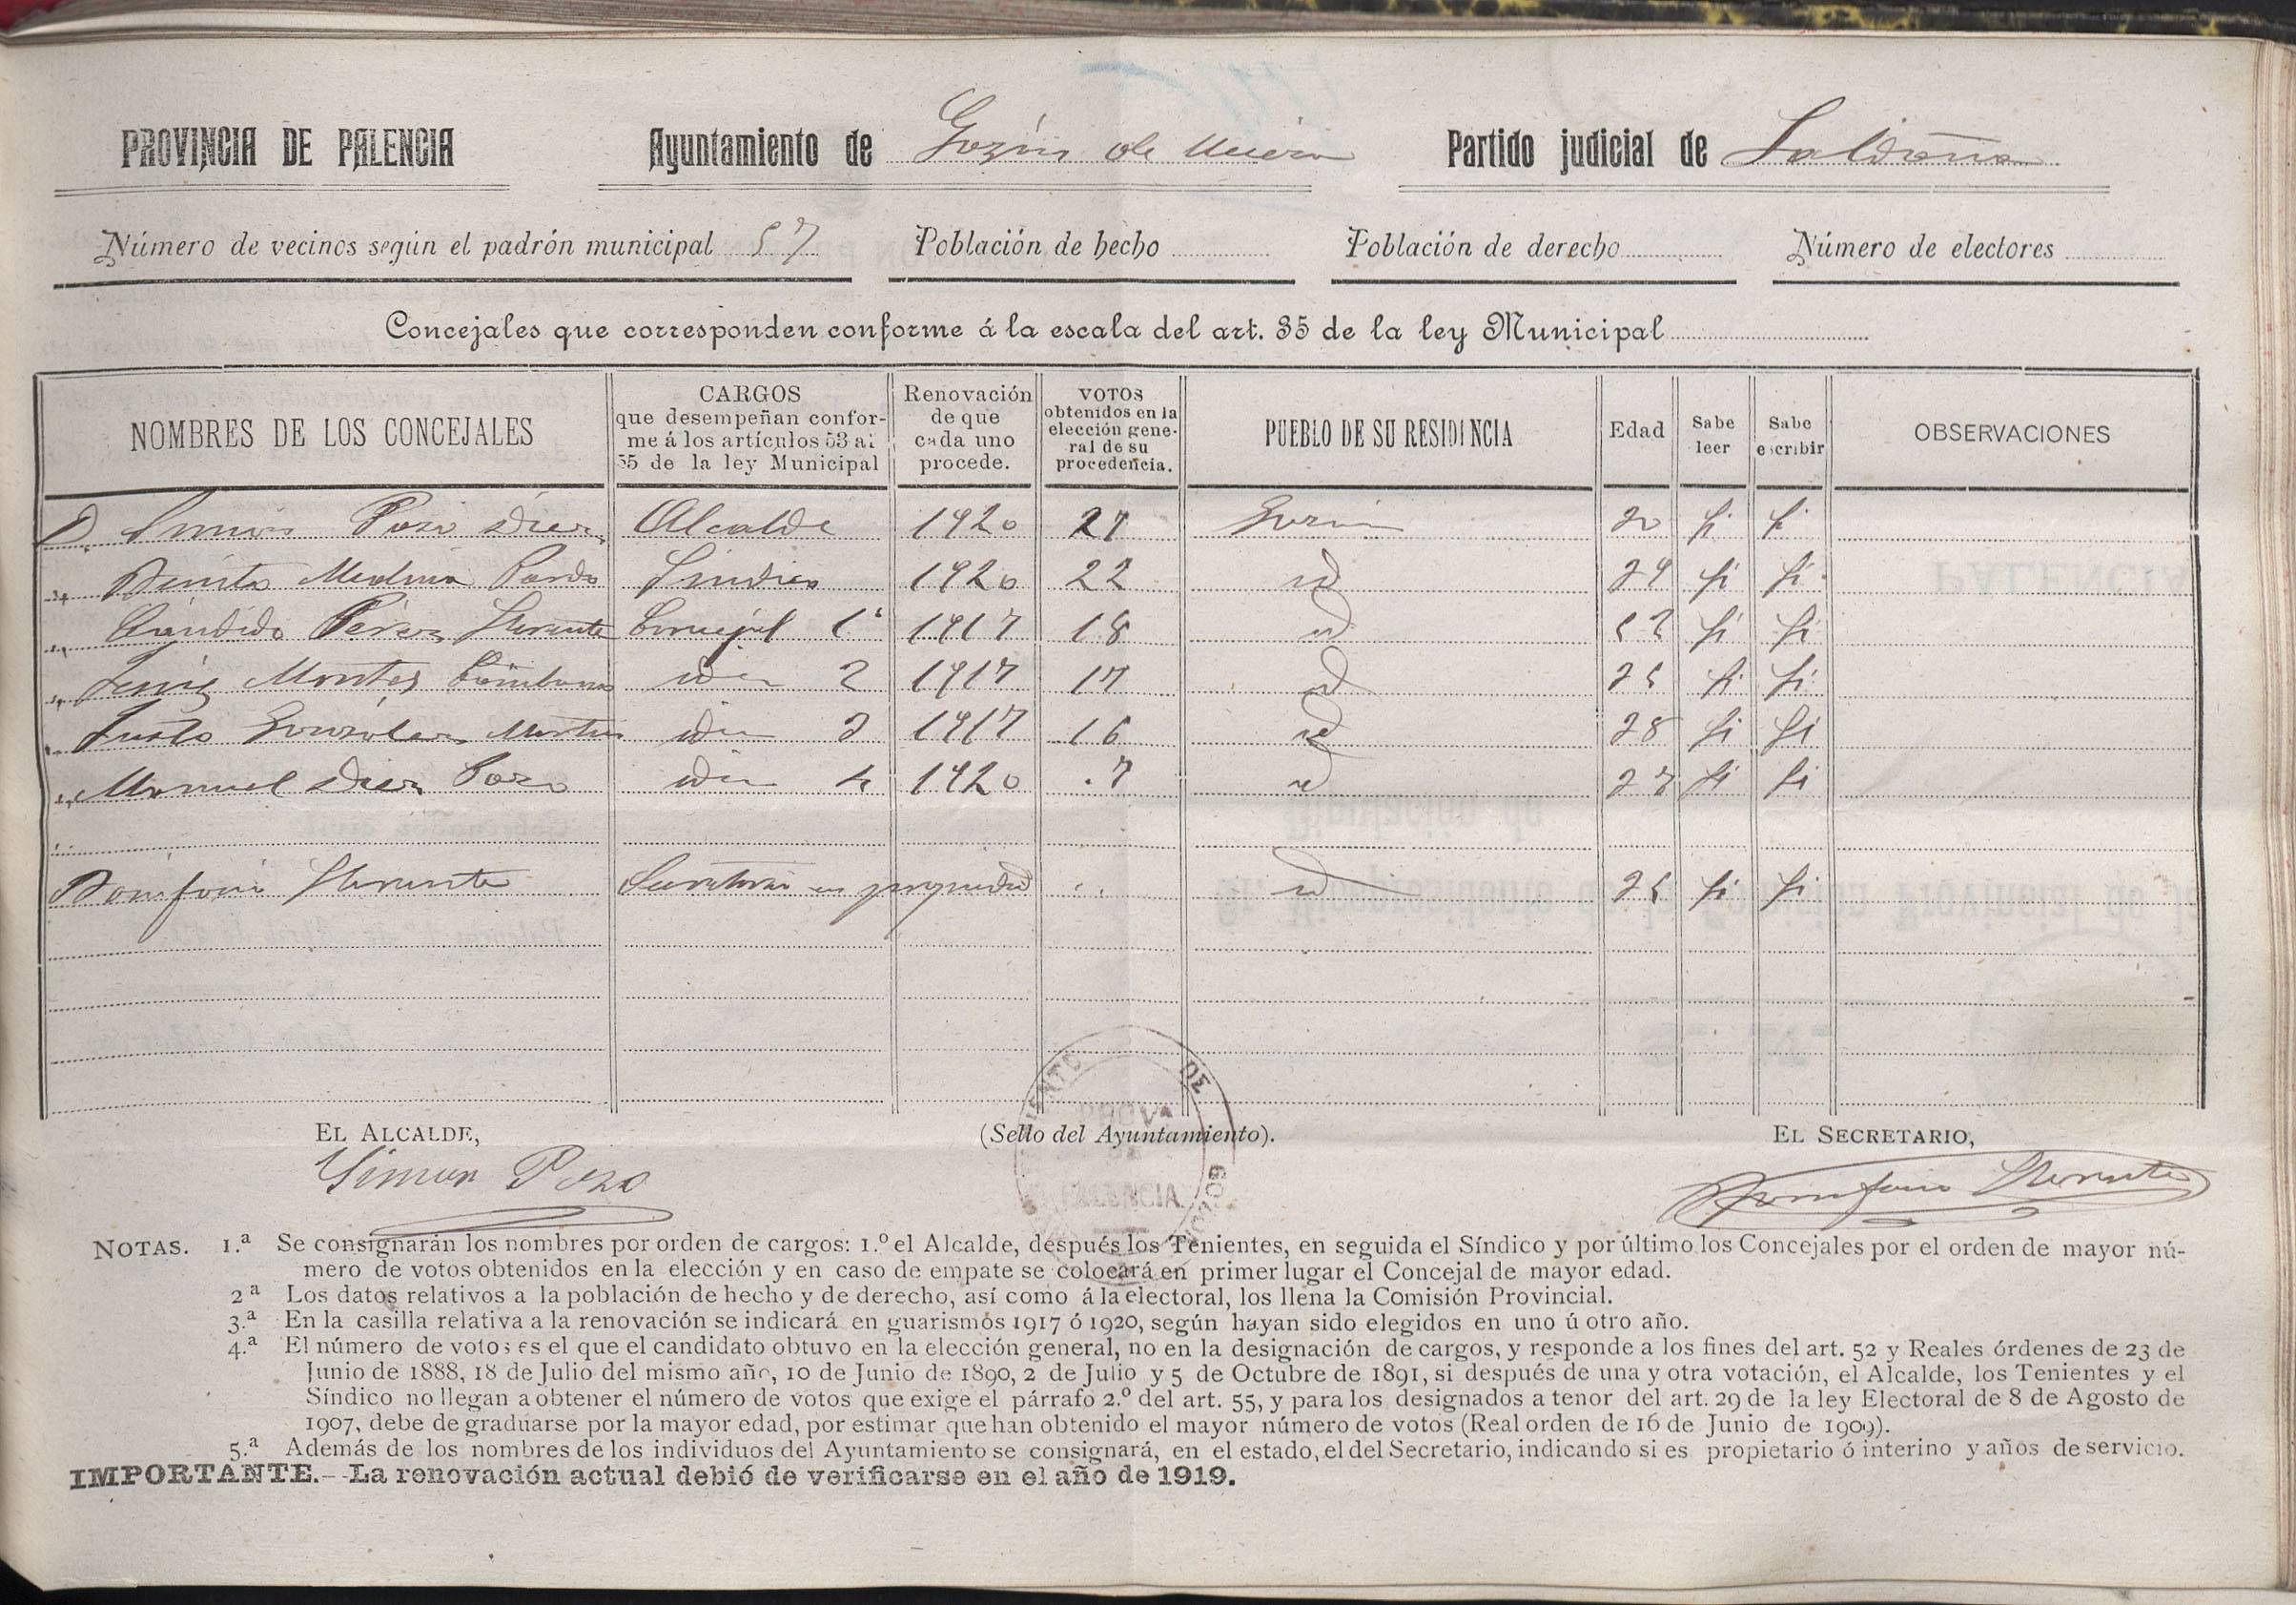 PROVINCIA DE PALENCIA Ayuntamiento de Gozón de Ucieza Partido judicial de Saldaña
Número de vecinos según el padrón municipal 57 Población de hecho Población de derecho Número de electores
Concejales que corresponden conforme á la escala del art. 35 de la ley Municipal
NOMBRES DE LOS CONCEJALES CARGOS que desempeñan conforme á los artículos 53 al 55 de la ley Municipal Renovación de que cada uno procede. VOTOS obtenidos en la elección general de su procedencia. PUEBLO DE SU RESIDENCIA Edad Sabe leer Sabe escribir OBSERVACIONES
D. Simón Pozo Diez Alcalde 1920 27 Gozón si si
" Benito Medina Pardo Sindico 1920 22 id si si
" Cándido Pérez Llorente Concejal 1º 1917 18 id si si
" Montes iden 2 1917 17 id si si
" Justo González Martín iden 3 1917 16 id 38 si si
" Manuel Diez Pozo iden 4 1920 7 id si si
Bonifacio Llorente Secretario en propiedad " id si si
EL ALCALDE, (Sello del Ayuntamiento). EL SECRETARIO,
Simon Pozo Bonifacio Llorente
PALENCIA
NOTAS. 1.ª Se consignarán los nombres por orden de cargos: 1.º el Alcalde, después los Tenientes, en seguida el Síndico y por último los Concejales por el orden de mayor nú-
mero de votos obtenidos en la elección y en caso de empate se colocará en primer lugar el Concejal de mayor edad.
2ª Los datos relativos a la población de hecho y de derecho, así como á la electoral, los llena la Comisión Provincial.
3.ª En la casilla relativa a la renovación se indicará en guarismos 1917 ó 1920, según hayan sido elegidos en uno ú otro año.
4.ª El número de votos es el que el candidato obtuvo en la elección general, no en la designación de cargos, y responde a los fines del art. 52 y Reales órdenes de 23 de
Junio de 1888, 18 de Julio del mismo año, 10 de Junio de 1890, 2 de Julio y 5 de Octubre de 1891, si después de una y otra votación, el Alcalde, los Tenientes y el
Síndico no llegan a obtener el número de votos que exige el párrafo 2.º del art. 55, y para los designados a tenor del art. 29 de la ley Electoral de 8 de Agosto de
1907, debe de graduarse por la mayor edad, por estimar que han obtenido el mayor número de votos (Real orden de 16 de Junio de 1909).
5.ª Además de los nombres de los individuos del Ayuntamiento se consignará, en el estado, el del Secretario, indicando si es propietario ó interino y años de servicio.
IMPORTANTE.—La renovación actual debió de verificarse en el año de 1919.